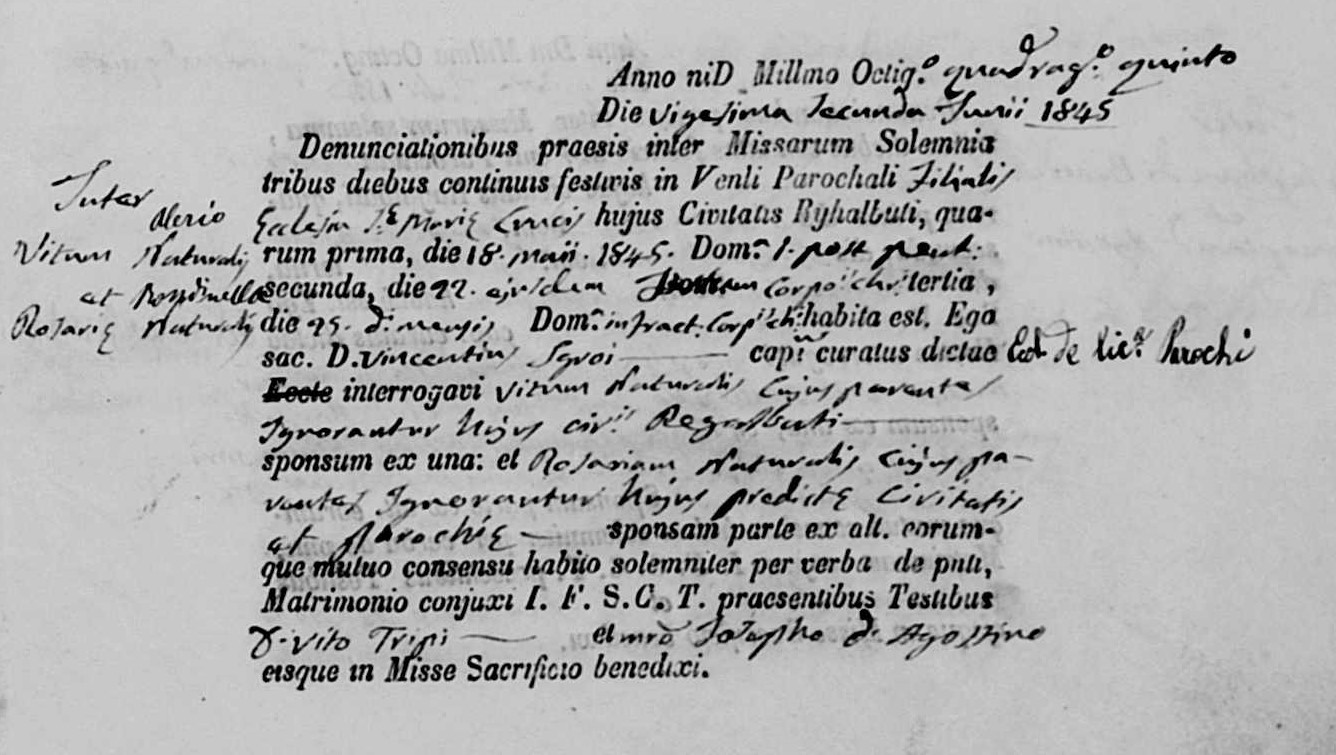 Anno niD Millmo Octig.º quadrag.º quinto
Die Vigesima Secunda Junii 1845
Denunciationibus praesis inter Missarum Solemnia
tribus diebus continuis festivis in Venli Parochali Filialis
Ecclesia S.ę Marię Crucis hujus Civitatis Ryhalbuti, qua-
rum prima, die 18. maii. 1845. Dom.ª 1. post pent:
secunda, die 22. ejusdem Corpo: chri: tertia,
die 25. d.i mensis Dom.ª infract. Corp.is ch: habita est. Ego
sac. D. Vincentius Sgroi cap.us curatus dictae Eccl. de lic.ª Parochi
Eccle interrogavi Vitum Naturalis Cujus parentes
Ignorantur hujus civ.is Regalbuti
sponsum ex una: et Rosariam Naturalis cujus pa-
rentes Ignorantur hujus predictę Civitatis
et Parochię sponsam parte ex alt. eorum-
que mutuo consensu habito solemniter per verba de pnti,
Matrimonio conjuxi I. F. S. C. T. praesentibus Testibus
D. Vito Tripi et mro Josepho di Agostino
eisque in Misse Sacrificio benedixi.
Inter
Vitum Naturalis
et
Rosarię Naturalis